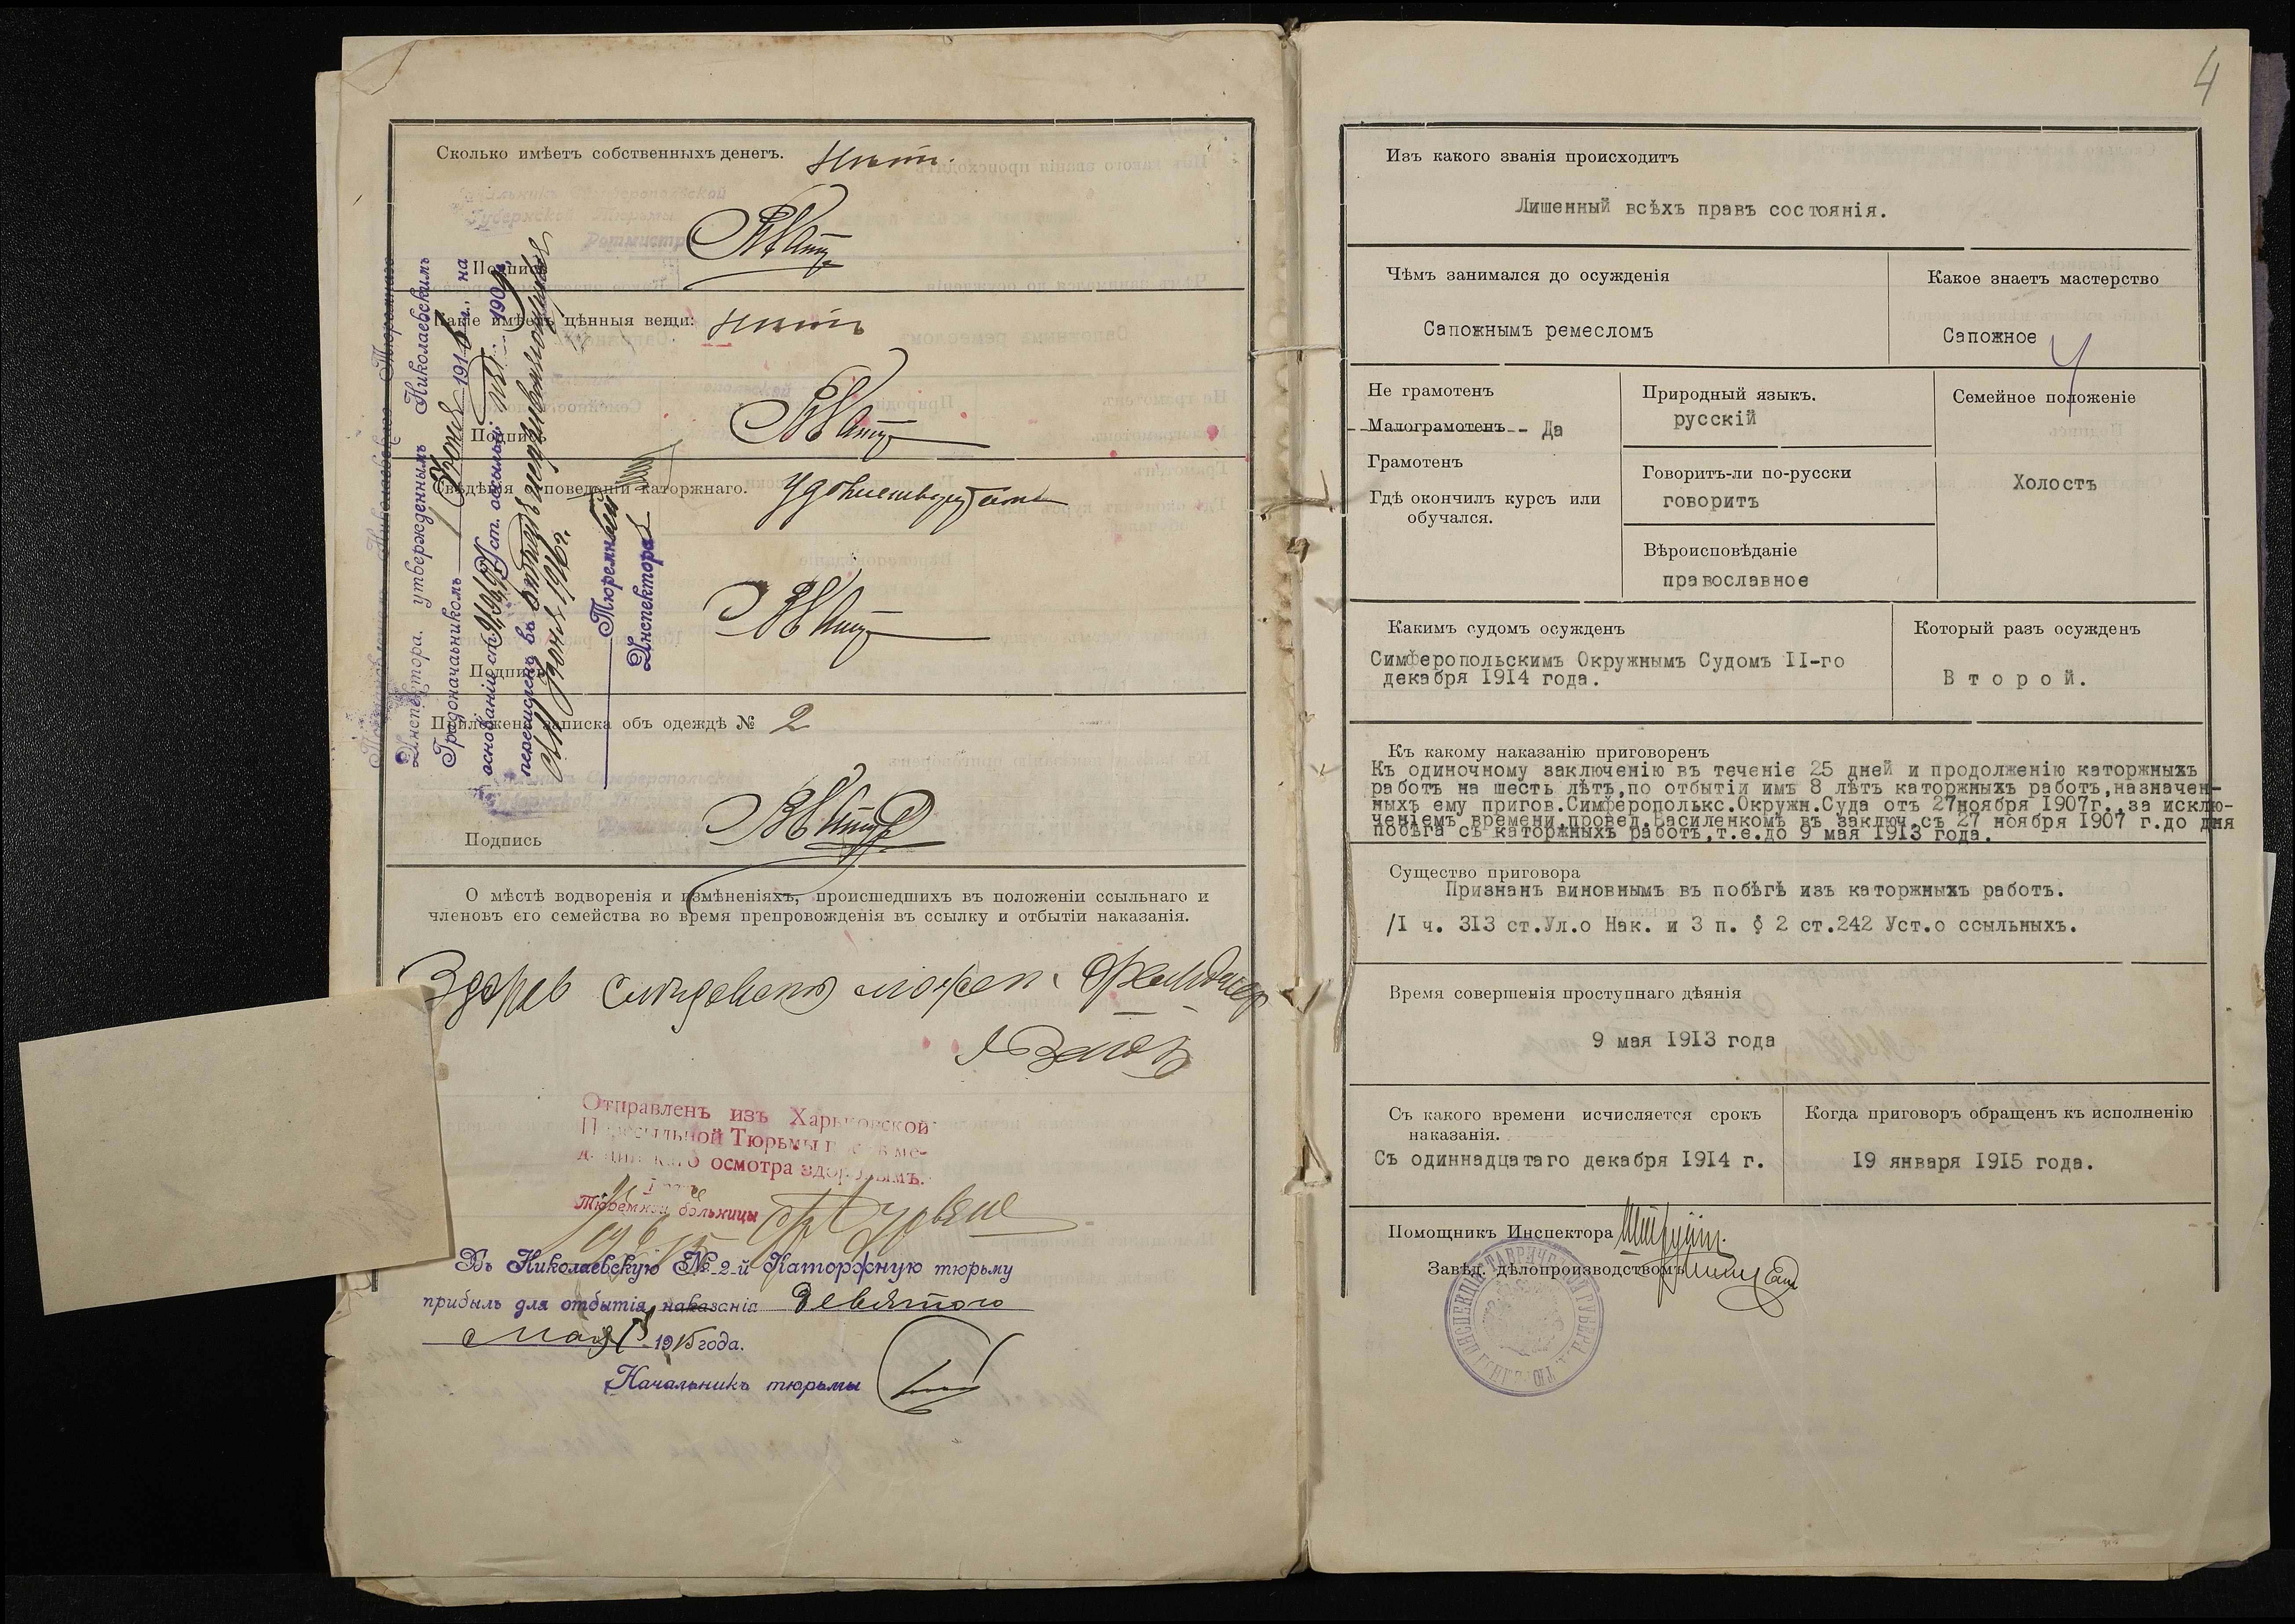 Сколько имѣетъ собственныхъ денегъ. Нѣтъ.
Начальникъ Симферопольской
Губернской Тюрьмы
Ротмистръ
Подпись
Какіе имѣетъ цѣнныя вещи: Нѣтъ
Подпись
Свѣдѣнія о поведеніи каторжнаго.
Подпись
Приложена записка объ одеждѣ № 2
Подпись
Инспектора, утвержденнымъ Николаевскимъ
Градоначальникомъ 1 Іюня 1916 г., на
основаніи ст.
переведенъ въ отрядъ
Іюня 1916 г.
Тюремный
Инспекторъ
О мѣстѣ водворенія и измѣненіяхъ, происшедшихъ въ положеніи ссыльнаго и
членовъ его семейства во время препровожденія въ ссылку и отбытіи наказанія.
Здоров следовать может Фельдшер
Отправленъ изъ Харьковской
Пересыльной Тюрьмы
осмотра здоровымъ.
Тюремной больницы
Въ Николаевскую № 2-й Каторжную тюрьму
прибылъ для отбытія наказанія Девятого
мая 1915 года.
Начальникъ тюрьмы
4
Изъ какого званія происходитъ
Лишенный всѣхъ правъ состоянія.
Чѣмъ занимался до осужденія
Какое знаетъ мастерство
Сапожнымъ ремесломъ
Сапожное
Не грамотенъ
Малограмотенъ -- Да
Грамотенъ
Гдѣ окончилъ курсъ или
обучался.
Природный языкъ.
русскій
Говоритъ-ли по-русски
говоритъ
Вѣроисповѣданіе
православное
Семейное положеніе
Холостъ
Какимъ судомъ осужденъ
Симферопольскимъ Окружнымъ Судомъ II-го
декабря 1914 года.
Который разъ осужденъ
Второй.
Къ какому наказанію приговоренъ
Къ одиночному заключенію въ теченіе 25 дней и продолженію каторжныхъ
работъ на шесть лѣтъ,по отбытіи имъ 8 лѣтъ каторжныхъ работъ,назначен-
ныхъ ему пригов.Симферополькс.Окружн.Суда отъ 27ноября 1907г.,за исклю-
ченіемъ времени,провед.Василенкомъ въ заключ.съ 27 ноября 1907 г.до дня
побѣга съ каторжныхъ работъ,т.е.до 9 мая 1913 года.
Существо приговора
Признанъ виновнымъ въ побѣгѣ изъ каторжныхъ работъ.
/I ч. 313 ст.Ул.о Нак. и 3 п. § 2 ст.242 Уст.о ссыльныхъ.
Время совершенія проступнаго дѣянія
9 мая 1913 года
Съ какого времени исчисляется срокъ
наказанія.
Съ одиннадцатаго декабря 1914 г.
Когда приговоръ обращенъ къ исполненію
19 января 1915 года.
Помощникъ Инспектора
Завѣд. дѣлопроизводствомъ